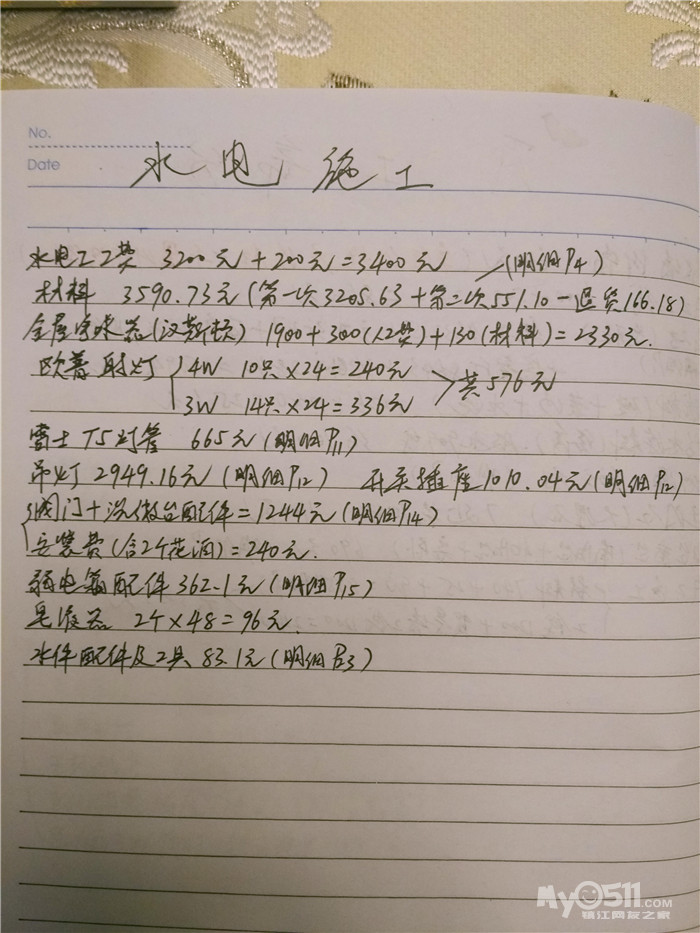 No.
Date
水电施工
水电工工费 3200元+200元=3400元 (明细P4)
材料 3590.73元(第一次3205.63+第二次551.10-退货166.18)
全屋净水器(汉斯顿) 1900+300(人工费)+130(材料)=2330元.
欧普射灯 4W 10只×24=240元
3W 14只×24=336元 共576元
雷士T5灯管 665元(明细P11)
吊灯2949.16元(明细P12) 开关插座1010.04元(明细P12)
阀门+洗漱台配件=1244元(明细P14)
安装费(含2个花洒)=240元.
弱电箱配件362.1元(明细P15)
皂液器 2个×48=96元.
水件配件及工具83.1元(明细P23)
My0511.COM
镇江网友之家